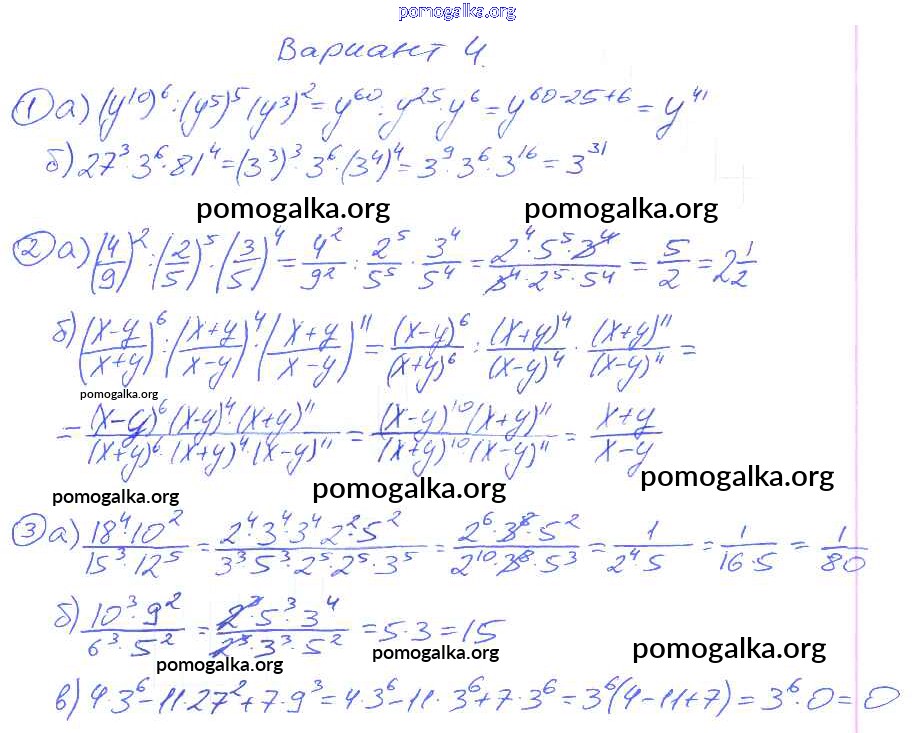 pomogalka.org
Вариант 4.
① а) (y¹⁹)⁶ : (y⁵)⁵ (y³)² = y⁶⁰ : y²⁵ · y⁶ = y⁶⁰⁻²⁵⁺⁶ = y⁴¹
б) 27³ · 3⁶ · 81⁴ = (3³)³ · 3⁶ · (3⁴)⁴ = 3⁹ · 3⁶ · 3¹⁶ = 3³¹
pomogalka.org pomogalka.org
② а) (4/9)² : (2/5)⁵ · (3/5)⁴ = 4²/9² : 2⁵/5⁵ · 3⁴/5⁴ = 2⁴ · 5⁵ · 3⁴ / 3⁴ · 2⁵ · 5⁴ = 5/2 = 2 1/2
б) ((x-y)/(x+y))⁶ : ((x+y)/(x-y))⁴ · ((x+y)/(x-y))¹¹ = (x-y)⁶/(x+y)⁶ : (x+y)⁴/(x-y)⁴ · (x+y)¹¹/(x-y)¹¹ =
pomogalka.org
= (x-y)⁶ (x-y)⁴ · (x+y)¹¹ / (x+y)⁶ · (x+y)⁴ · (x-y)¹¹ = (x-y)¹⁰ (x+y)¹¹ / (x+y)¹⁰ · (x-y)¹¹ = (x+y)/(x-y)
pomogalka.org pomogalka.org pomogalka.org
③ а) 18⁴ · 10² / 15³ · 12⁵ = 2⁴ · 3⁴ · 3⁴ · 2² · 5² / 3³ · 5³ · 2⁵ · 2⁵ · 3⁵ = 2⁶ · 3⁸ · 5² / 2¹⁰ · 3⁸ · 5³ = 1 / 2⁴ · 5 = 1 / 16 · 5 = 1/80
б) 10³ · 9² / 6³ · 5² = 2³ · 5³ · 3⁴ / 2³ · 3³ · 5² = 5 · 3 = 15
pomogalka.org pomogalka.org pomogalka.org
в) 4 · 3⁶ - 11 · 27² + 7 · 9³ = 4 · 3⁶ - 11 · 3⁶ + 7 · 3⁶ = 3⁶ (4 - 11 + 7) = 3⁶ · 0 = 0